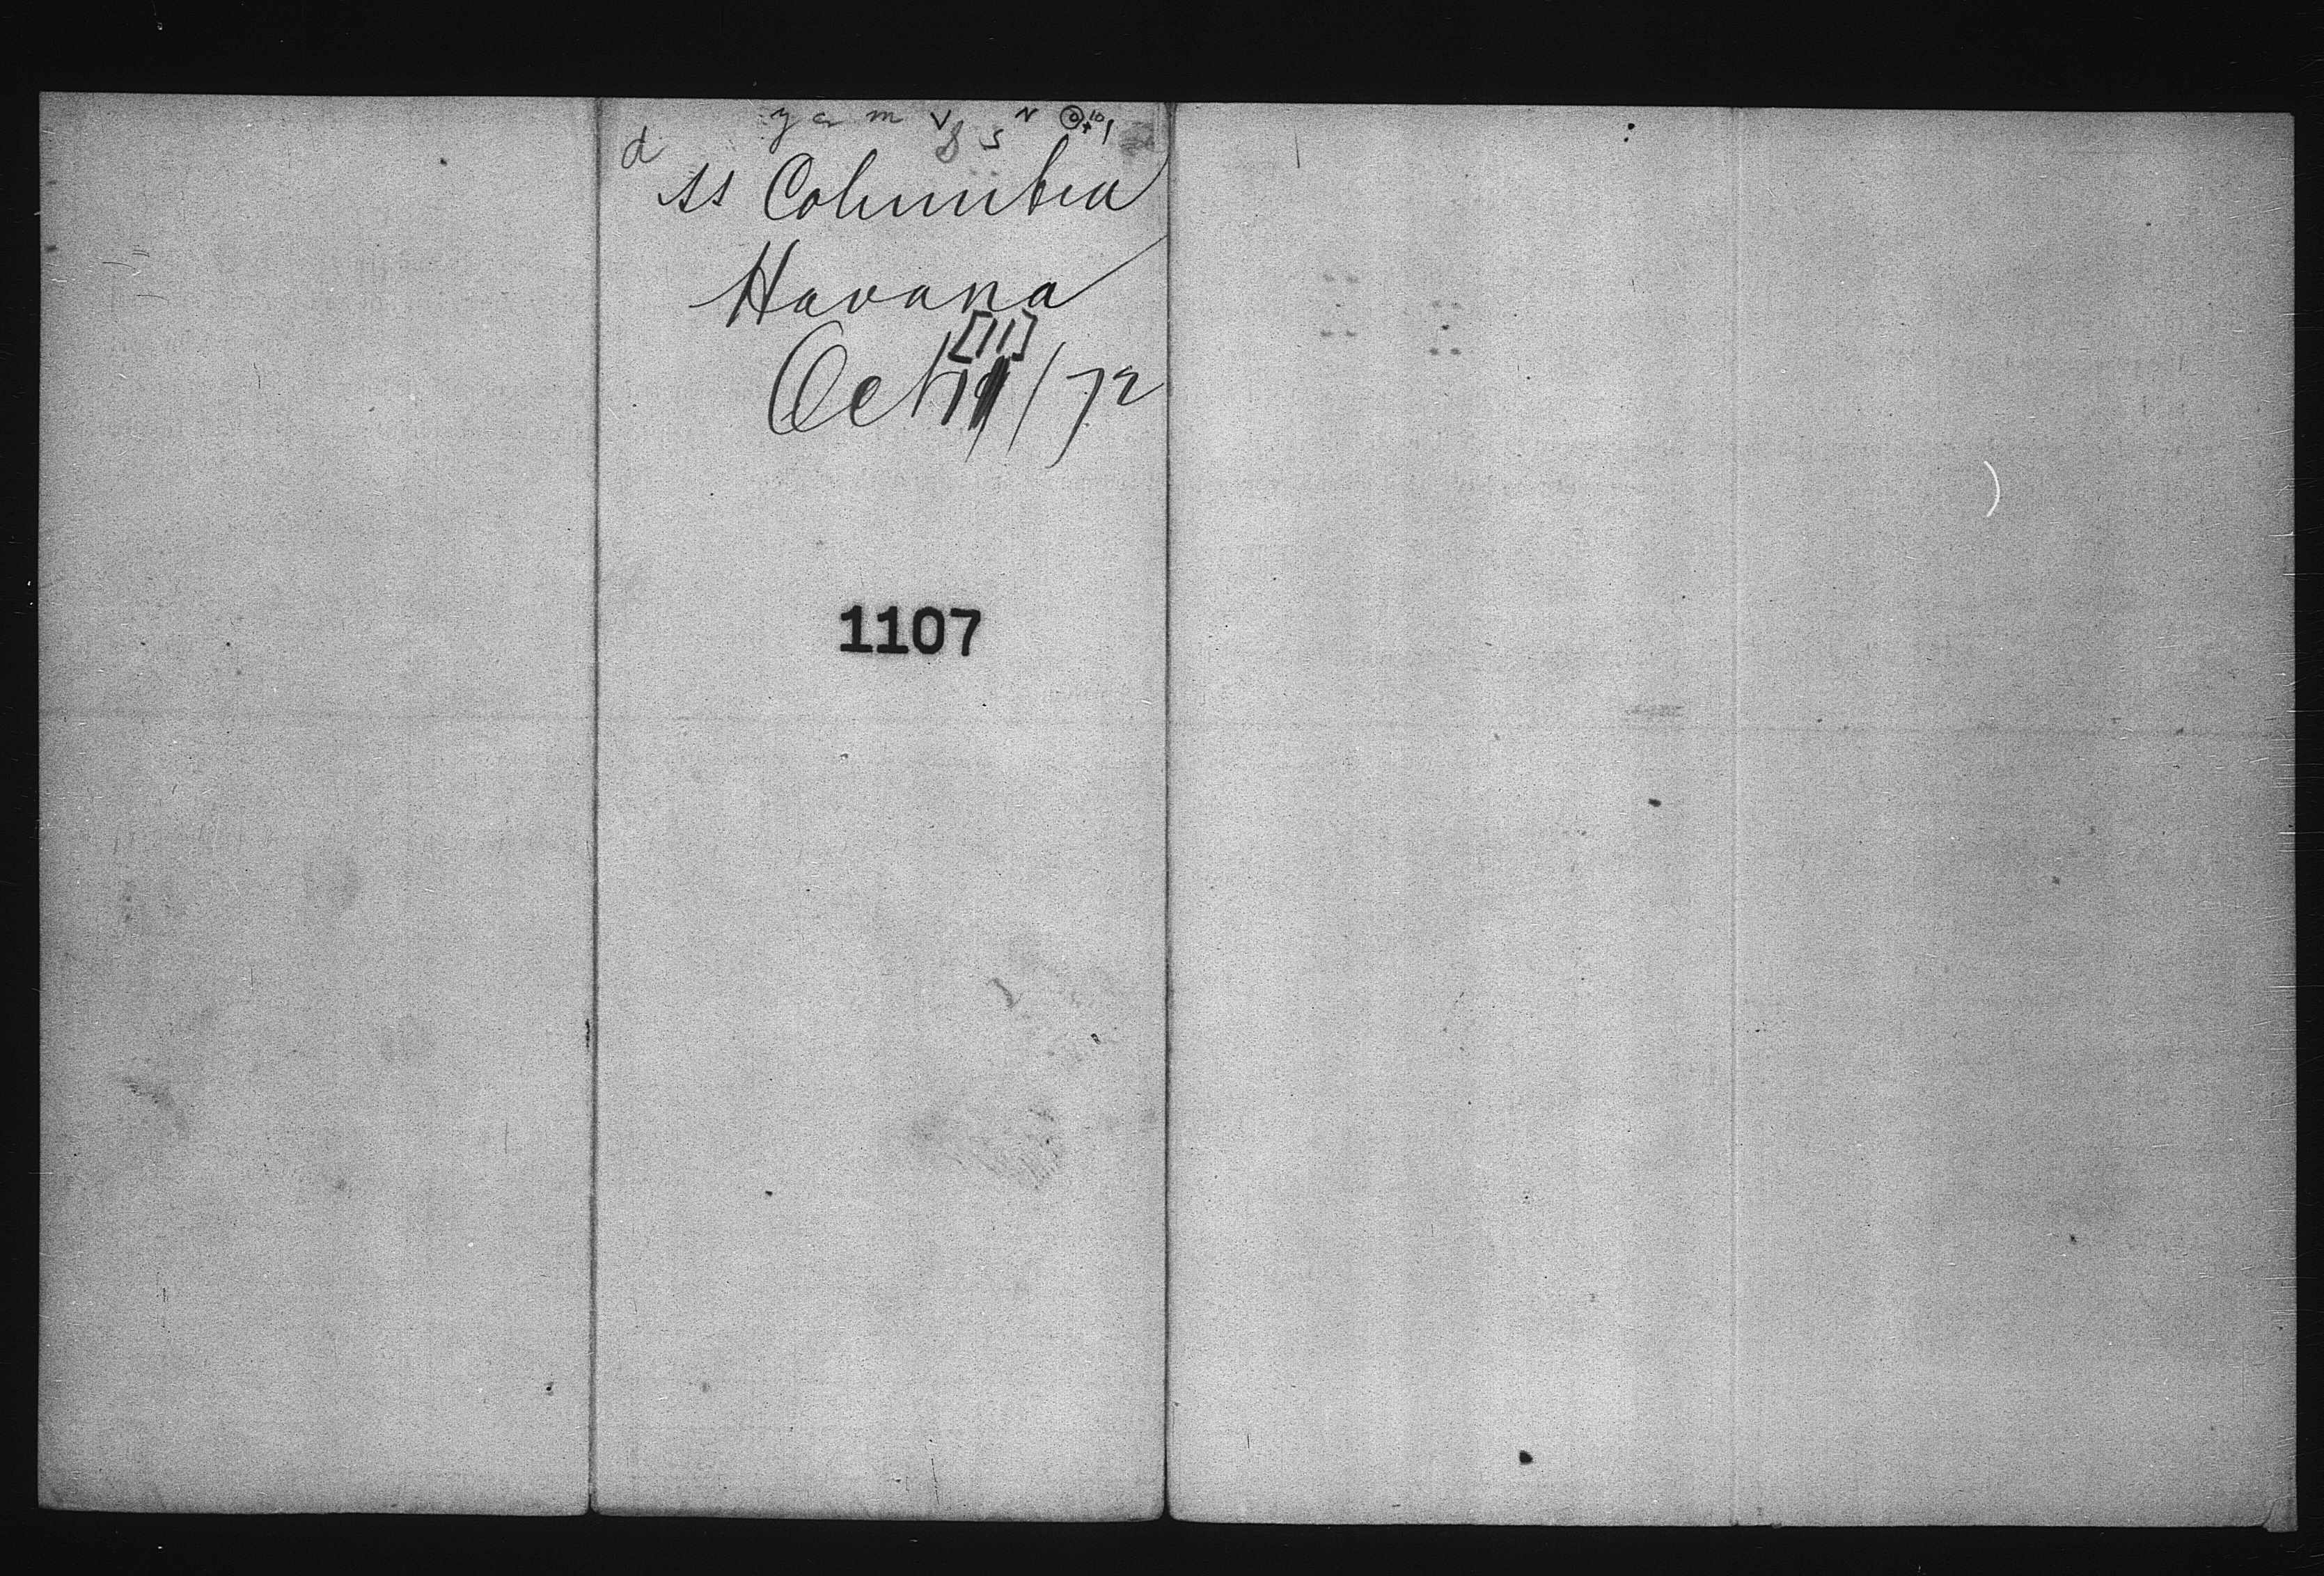 y a m v 8 s N
d
SS Columbia
Havana
[11]
Oct 11/72
1107